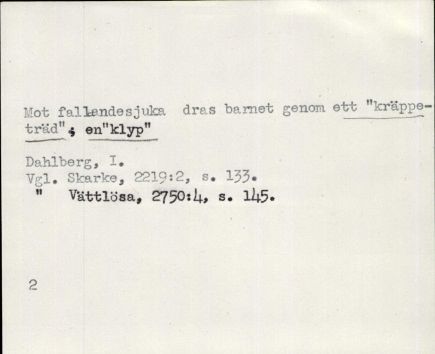 Mot fallandesjuka dras barnet genom ett "kräppe-
träd", en"klyp"
Dahlberg, I.
Vgl. Skarke, 2219:2, s. 133.
" Vättlösa, 2750:4, s. 145.
2